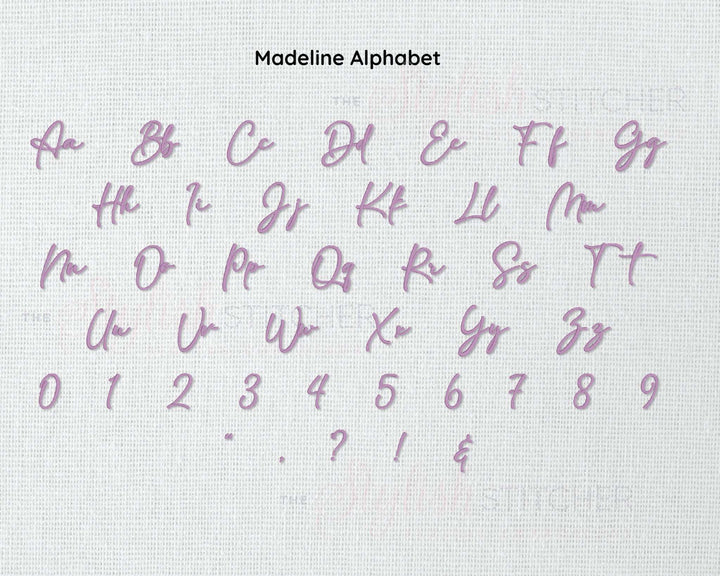 Madeline Alphabet
THE Stylish STITCHER
Aa Bb Cc Dd Ee Ff Gg
Hh Ii Jj Kk Ll Mm
Nn Oo Pp Qq Rr Ss Tt
Uu Vv Ww Xx Yy Zz
THE Stylish STITCHER
0 1 2 3 4 5 6 7 8 9
" . ? ! &
THE Stylish STITCHER